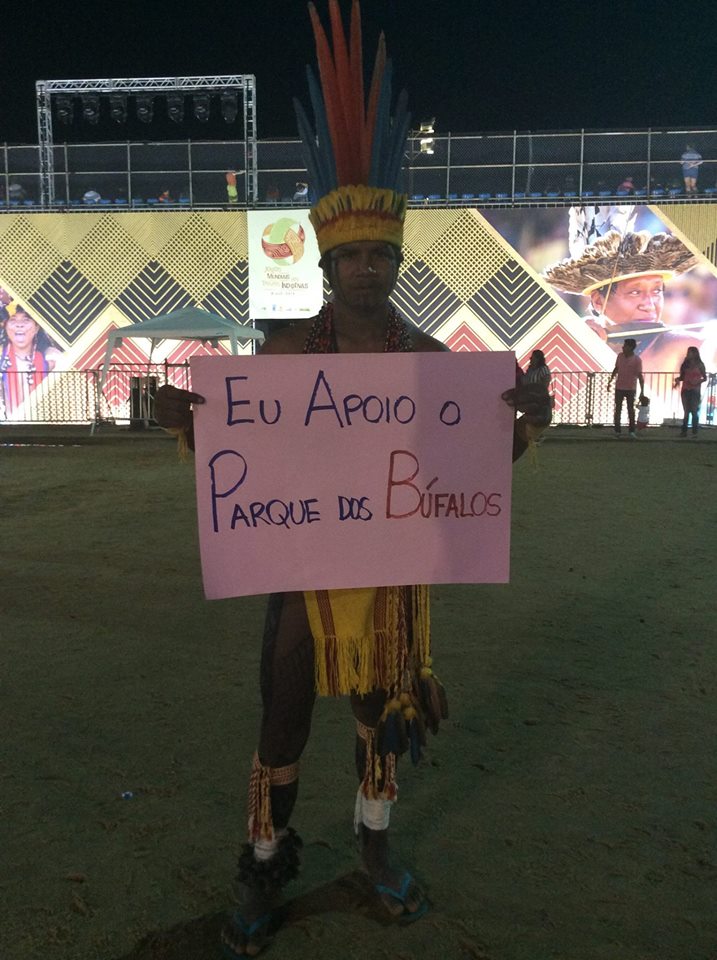 JOGOS
MUNDIAIS DOS
POVOS INDÍGENAS
EU APOIO O
PARQUE DOS BÚFALOS